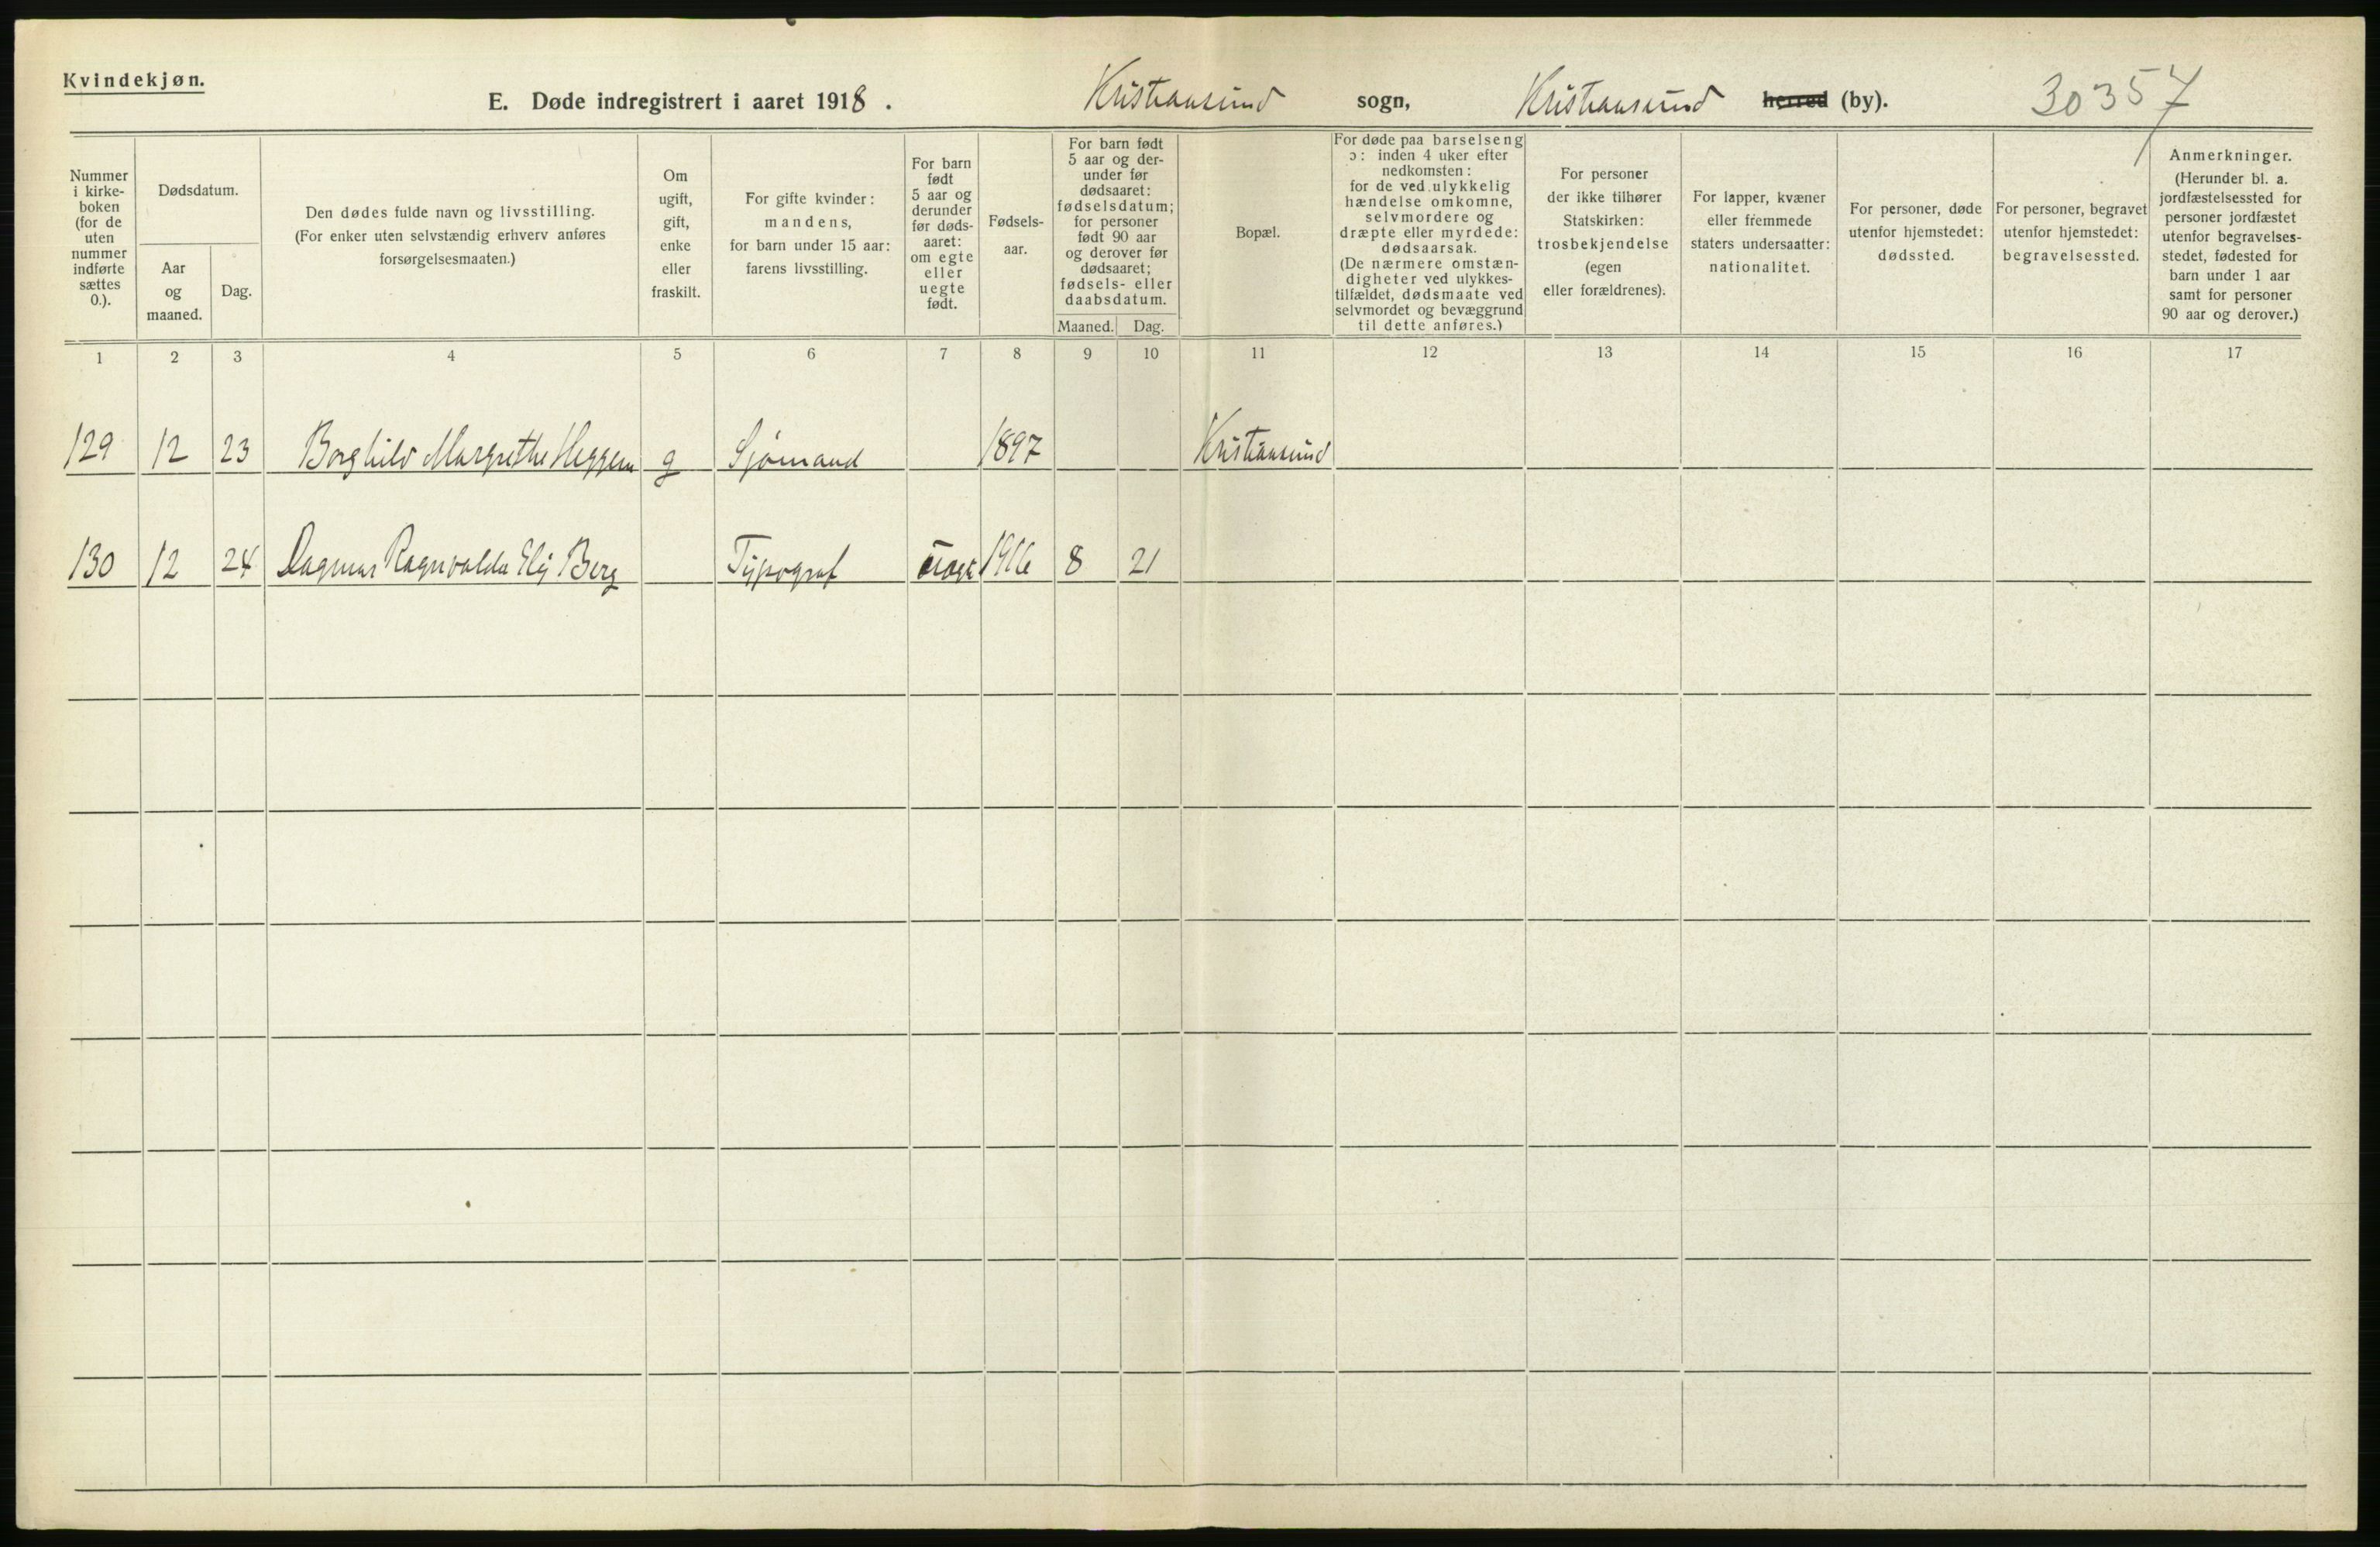 Kvindekjøn.
E. Døde indregistrert i aaret 1918 . Kristiansund sogn, Kristiansund herred (by). 30357
Nummer i kirkeboken (for de uten nummer indførte sættes 0.).
Dødsdatum.
Aar og maaned.
Dag.
Den dødes fulde navn og livsstilling.
(For enker uten selvstændig erhverv anføres
forsørgelsesmaaten.)
Om
ugift,
gift,
enke
eller
fraskilt.
For gifte kvinder:
mandens,
for barn under 15 aar:
farens livsstilling.
For barn
født
5 aar og
derunder
før døds-
aaret:
om egte
eller
uegte
født.
Fødsels-
aar.
For barn født
5 aar og der-
under før
dødsaaret:
fødselsdatum;
for personer
født 90 aar
og derover før
dødsaaret;
fødsels- eller
daabsdatum.
Maaned. Dag.
Bopæl.
For døde paa barselseng
ɔ: inden 4 uker efter
nedkomsten:
for de ved ulykkelig
hændelse omkomne,
selvmordere og
dræpte eller myrdede:
dødsaarsak.
(De nærmere omstæn-
digheter ved ulykkes-
tilfældet, dødsmaate ved
selvmordet og bevæggrund
til dette anføres.)
For personer
der ikke tilhører
Statskirken:
trosbekjendelse
(egen
eller forældrenes).
For lapper, kvæner
eller fremmede
staters undersaatter:
nationalitet.
For personer, døde
utenfor hjemstedet:
dødssted.
For personer, begravet
utenfor hjemstedet:
begravelsessted.
Anmerkninger.
(Herunder bl. a.
jordfæstelsessted for
personer jordfæstet
utenfor begravelses-
stedet, fødested for
barn under 1 aar
samt for personer
90 aar og derover.)
1 2 3 4 5 6 7 8 9 10 11 12 13 14 15 16 17
129 12 23 Borghild Margrethe Heggem g Sjømand 1897 Kristiansund
130 12 24 Dagmar Ragnvalda Elij Berg Typograf 1916 8 21